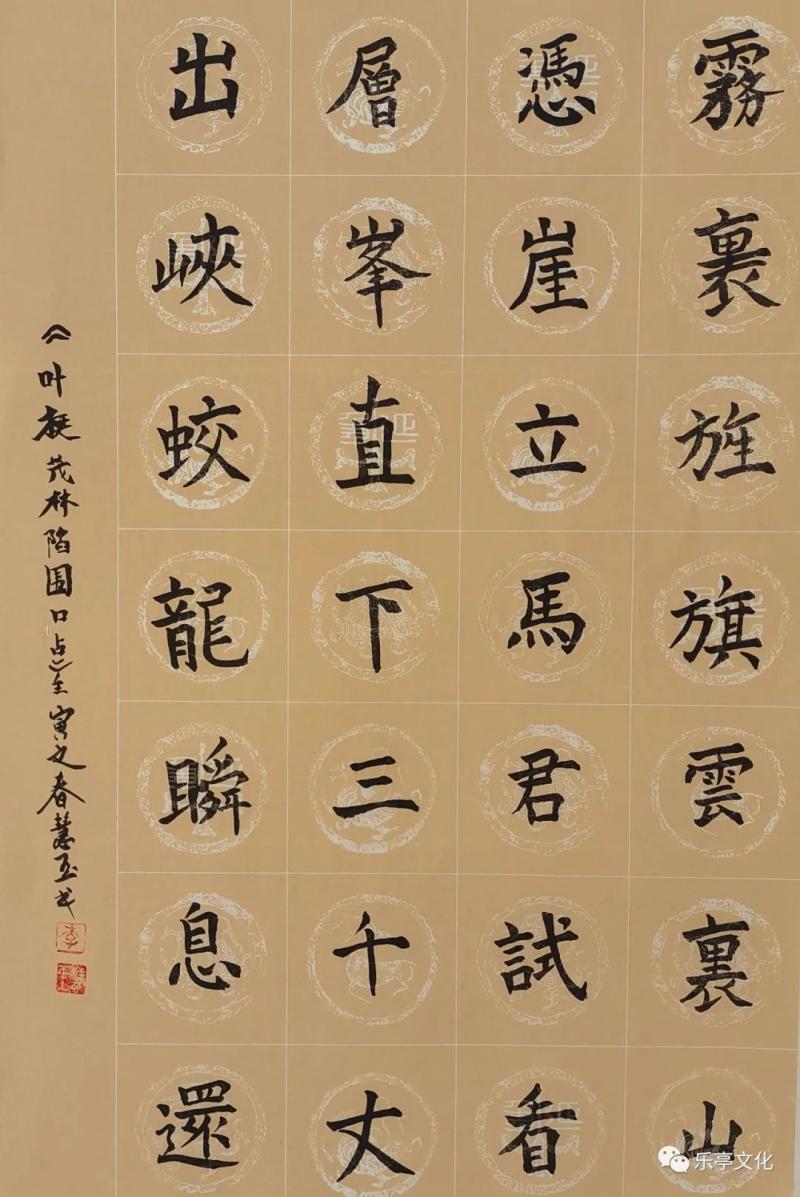 霧裏旌旗雲裏山
憑崖立馬君試看
層峯直下三千丈
出峽蛟龍瞬息還
叶挺茂林陷围口占 壬寅之春慧玉书
李
乐亭文化